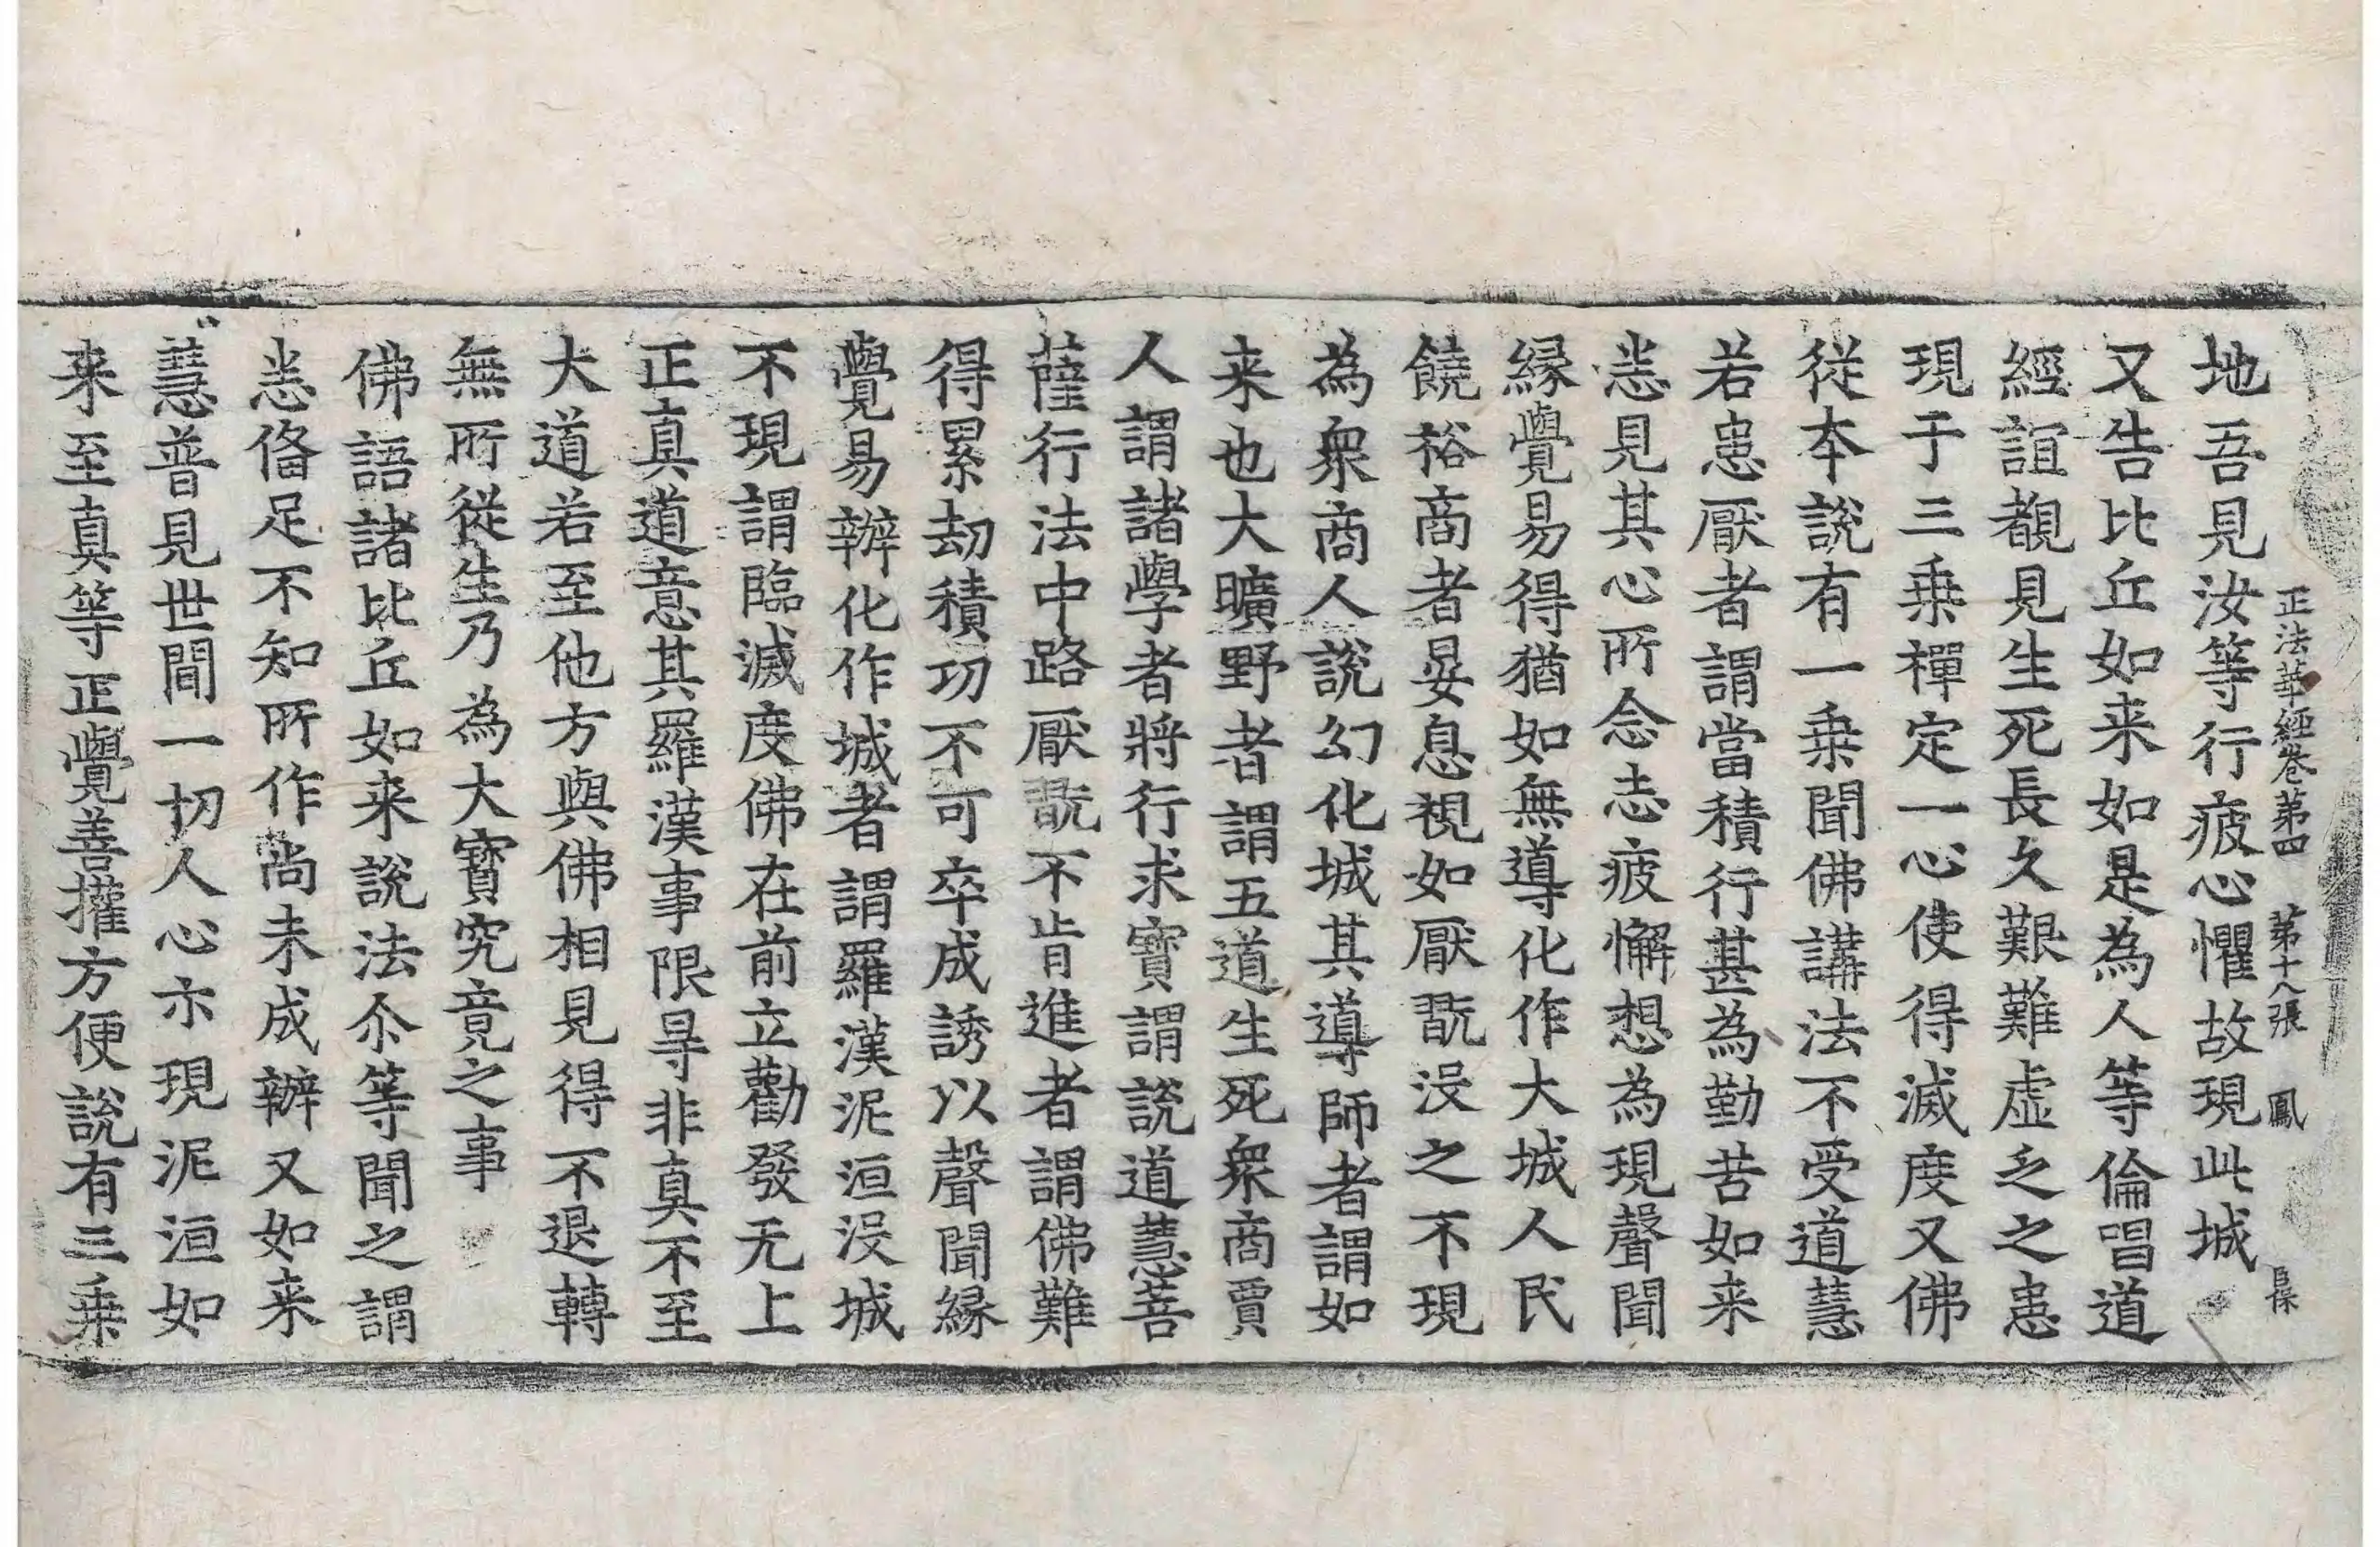 正法華經卷第四 第十八張 鳳
地吾見汝等行疲心懼故現此城
又告比丘如来如是為人等倫唱道
經誼覩見生死長久艱難虛乏之患
現于三乗禪定一心使得滅度又佛
從本說有一乗聞佛講法不受道慧
若患厭者謂當積行甚為勤苦如来
恙見其心所念志疲懈想為現聲聞
緣覺易得猶如無導化作大城人民
饒裕商者晏息視如厭翫没之不現
為衆商人說幻化城其導師者謂如
来也大曠野者謂五道生死衆商賈
人謂諸學者將行求寶謂說道慧菩
薩行法中路厭翫不肯進者謂佛難
得累劫積功不可卒成誘以聲聞緣
覺易辦化作城者謂羅漢泥洹没城
不現謂臨滅度佛在前立勸發无上
正真道意其羅漢事限㝵非真不至
大道若至他方與佛相見得不退轉
無所從生乃為大寶究竟之事
佛語諸比丘如来說法尒等聞之謂
恙俻足不知所作尚未成辦又如来
慧普見世間一切人心亦現泥洹如
来至真等正覺善權方便說有三乗